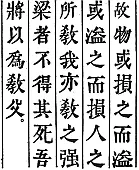 故物或損之而
或溢之而損人之
所敎我亦敎之强
梁者不得其死吾
將以爲敎父